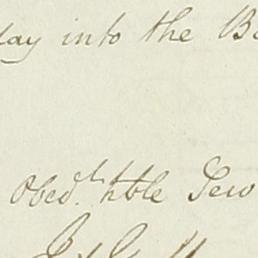 day into the B
Obed.t hble Serv